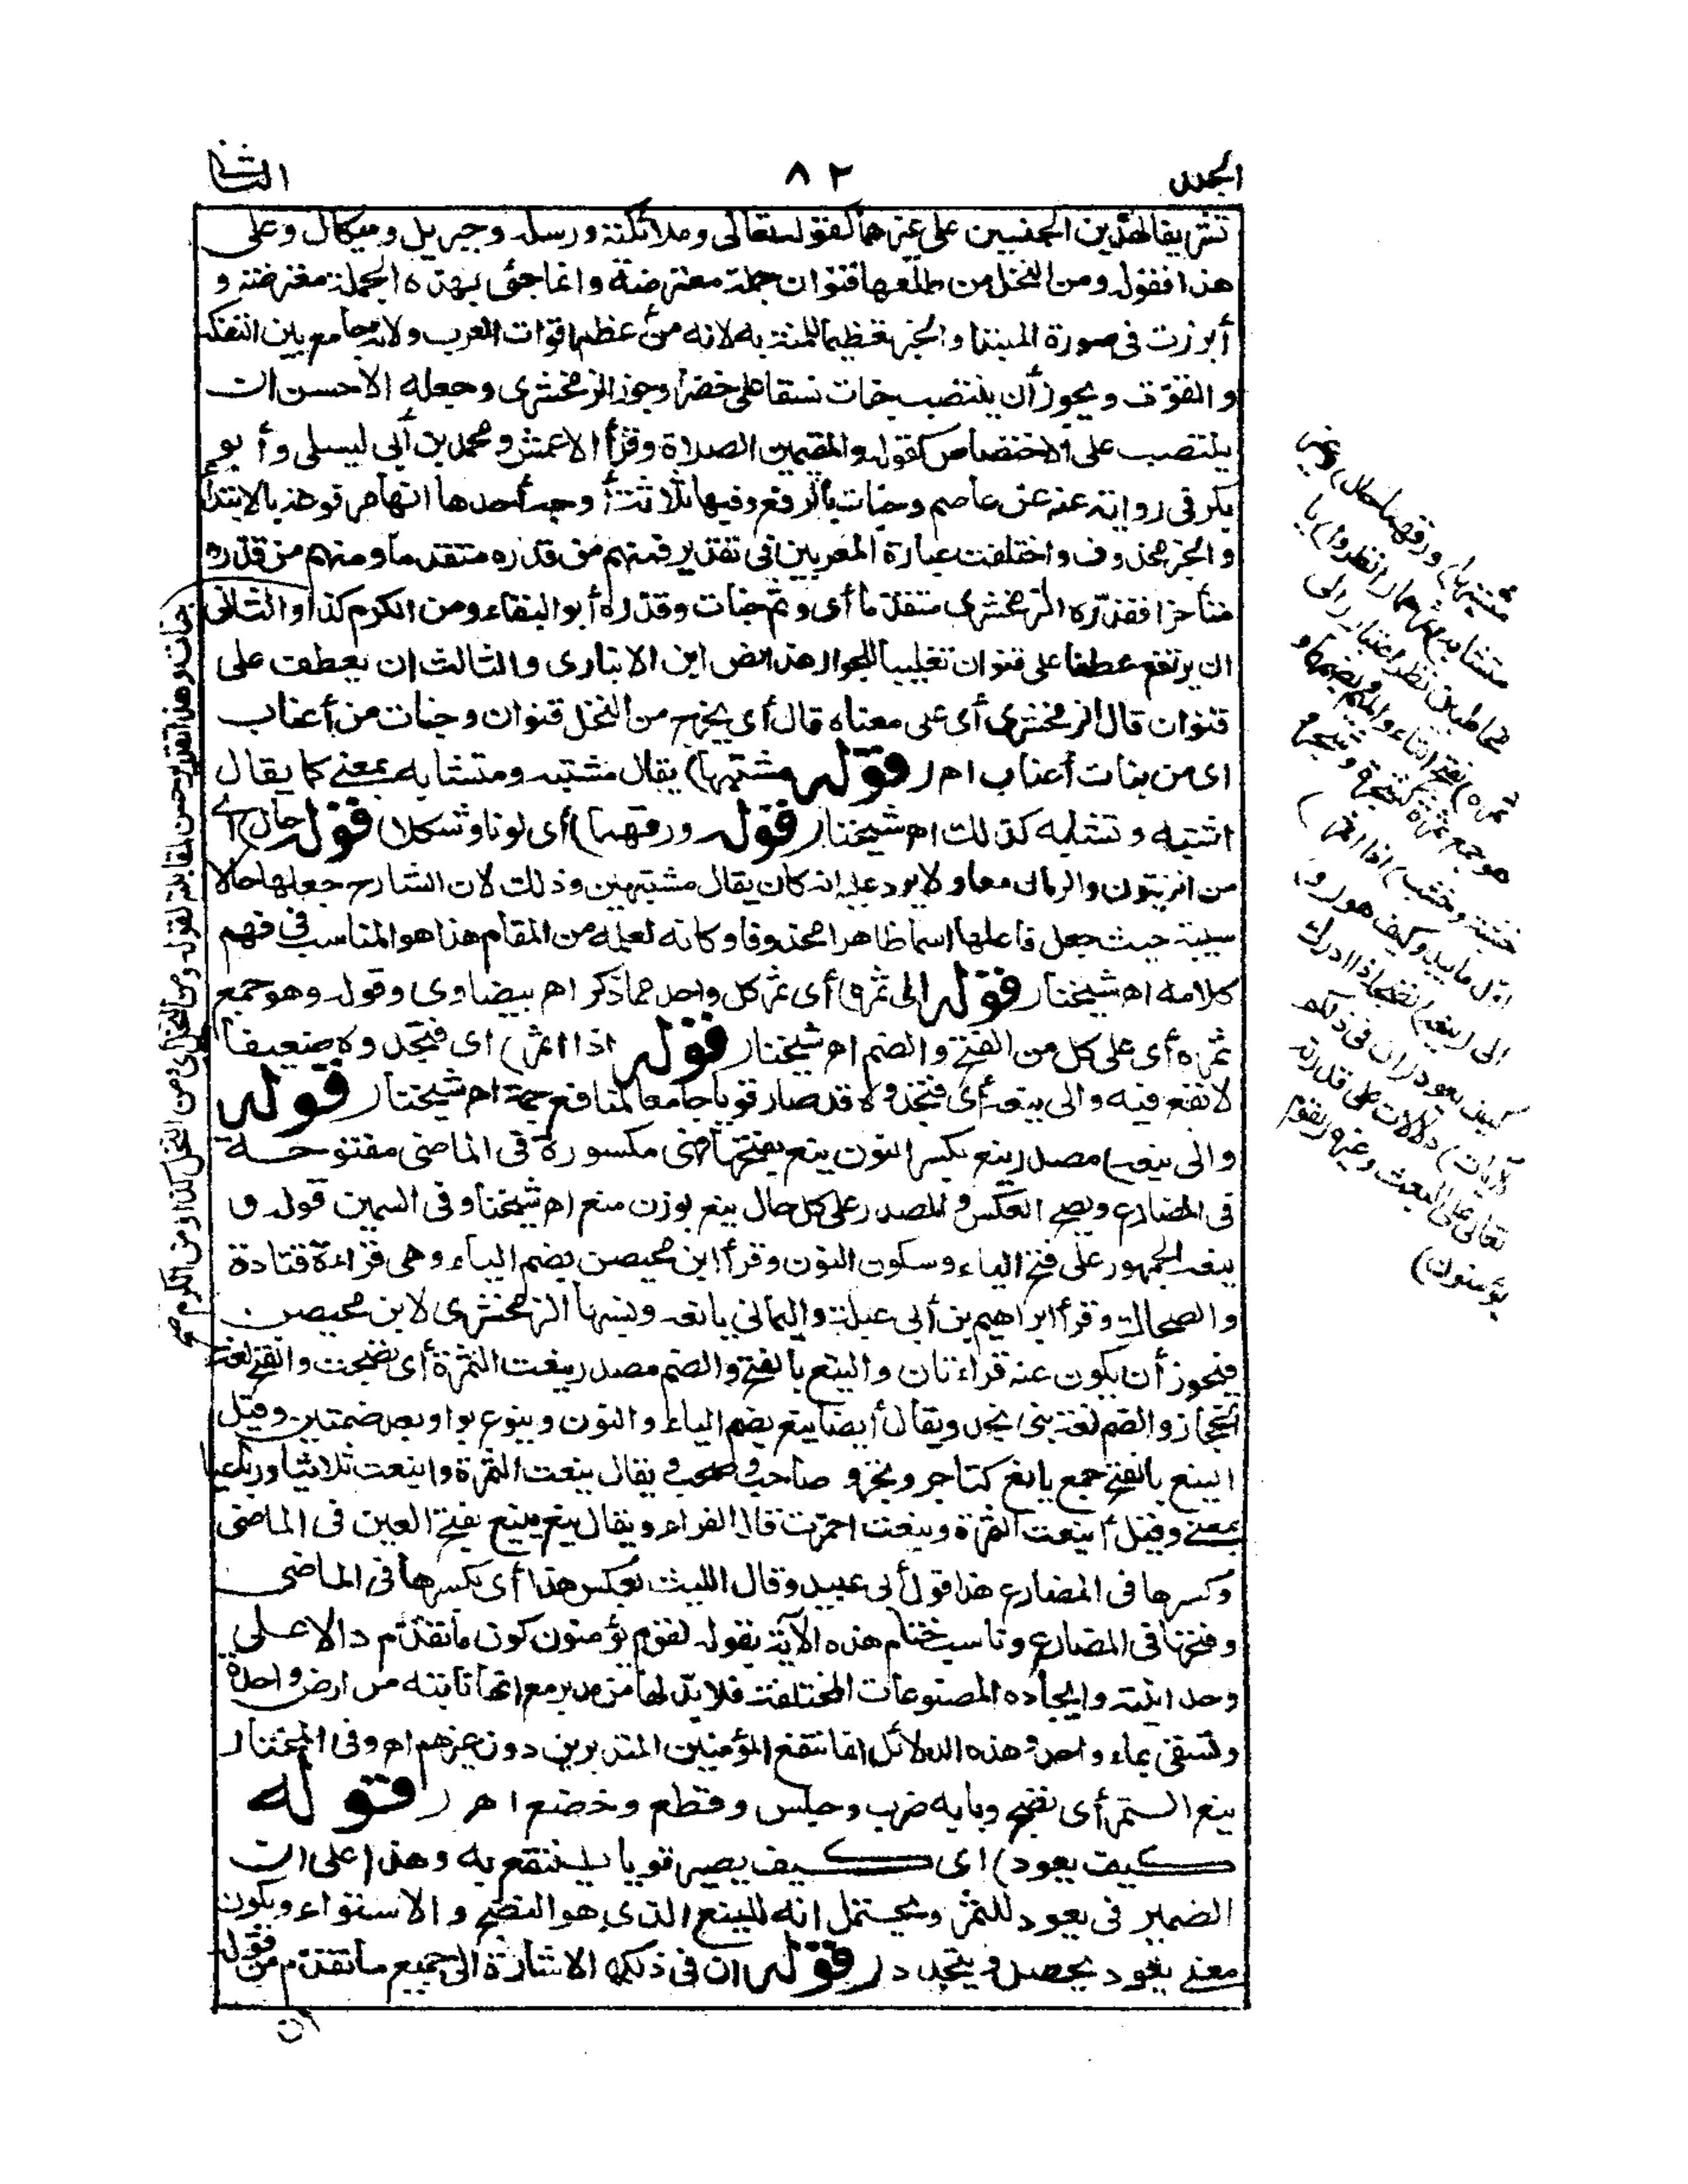 الجلد ٨٢ الثاني
تشريفا لهذين الجنسين على غيرهما كقوله تعالى وملائكته ورسله وجبريل وميكال وعلى
هذا فقوله ومن النخل من طلعها قنوان جملة معترضة وانما جئ بهذه الجملة معترضة و
أبرزت في صورة المبتدا والخبر تعظيما للمنة به لانه من أعظم اقوات العرب ولانه جامع بين التفكه
والتقوت ويجوز أن ينتصب جنات نسقا على خضرا وجوز الزمخشرى وجعله الاحسن ان
ينتصب على الاختصاص كقوله والمقيمين الصلاة وقرأ الاعمش ومحمد بن أبى ليسلى وأبو
بكر فى رواية عنه عن عاصم وجنات بالرفع وفيها ثلاثة أوجه أحدها انها مرفوعة بالابتدأ
والخبر محذوف واختلفت عبارة المعربين فى تقديره فمنهم من قدره متقدما ومنهم من قدره
متأخرا فقدّره الزمخشرى متقدما أى وثم جنات وقدّره أبو البقاء ومن الكرم كذا والثانى
ان يرتفع عطفا على قنوان تغليبا للجوار هذا نص ابن الانبارى والثالث ان يعطف على
قنوان قال الزمخشرى أى على معناه قال أى يخرج من النخل قنوان وجنات من أعناب
اى من بنات أعناب اه (قوله مشتبها) يقال مشتبه ومتشابه بمعنى كما يقال
اشتبه وتشابه كذلك اه شيخنا (قوله ورقهما) أى لونا وشكلا (قوله حال) أى
من الزيتون والرمان معا ولا يرد عليه انه كان يقال مشتبهين وذلك لان الشارح جعلها حالا
سببية حيث جعل فاعلها اسما ظاهرا محذوفا وكانه لعلمه من المقام هذا هو المناسب فى فهم
كلامه اه شيخنا (قوله الى ثمره) أى ثمر كل واحد مما ذكر اه بيضاوى وقوله وهو جمع
ثمرة أى على كل من الفتح والضم اه شيخنا (قوله اذا اثمر) اى فتجدوه ضعيفا
لا نفع فيه والى ينعه أى فتجدوه قد صار قويا جامعا لمنافع جمة اه شيخنا (قوله
والى ينعه) مصدر ينع بكسر النون ينع بفتحها فهى مكسورة فى الماضى مفتوحة
فى المضارع ويصح العكس والمصدر على كل حال ينع بوزن منع اه شيخنا وفى السمين قوله و
ينعه الجمهور على فتح الياء وسكون النون وقرأ ابن محيصن بضم الياء وهى قراءة قتادة
والضحاك وقرأ ابراهيم بن أبى عبلة واليمانى يانعه ونسبها الزمخشرى لابن محيصن
فيجوز أن يكون عنه قراءتان والينع بالفتح والضم مصدر ينعت الثمرة أى نضجت والفتح لغة
الحجاز والضم لغة بنى نجد ويقال أيضا ينع بضم الياء والنون وينوع بواو بعد ضمتين وقيل
الينع بالفتح جمع يانع كتاجر وتجر و صاحب وصحب ويقال ينعت الثمرة واينعت ثلاثيا ورباعيا
بمعنى وقيل أينعت الثمرة وينعت احمرّت قال الفراء ويقال ينع يينع بفتح العين فى الماضى
وكسرها فى المضارع هذا قول أبى عبيد وقال الليث بعكس هذا أى بكسرها فى الماضى
وفتحها فى المضارع وناسب ختام هذه الآية بقوله لقوم يؤمنون كون ما تقدّم دالا على
وحدانيته وايجاده المصنوعات المختلفة فلا بد لها من مدبر مع انها نابتة من ارض واحدة
وتسقى بماء واحد وهذه الدلائل انما تنفع المؤمنين المتدبرين دون غيرهم اه وفى المختار
ينع الثمر أى نضج وبابه ضرب وجلس وقطع وخضع اه (قوله
كيف يعود) اى كيف يصير قويا ينتفع به وهذا على ان
الضمير فى يعود للثمر ويحتمل انه للينع الذى هو النضج والاستواء ويكون
معنى يعود يحصل ويتجدد (قوله ان فى ذلكم) الاشارة الى جميع ما تقدّم من قوله
ان
مشتبها) ورقهما حال (وغير
متشابه) ثمرهما (انظروا) يا
مخاطبين نظر اعتبار (الى
ثمره) بفتح الثاء والميم وبضمهما و
هو جمع ثمرة كشجرة وشجر و
خشبة وخشب (اذا اثمر)
اوّل ما يبدو كيف هو (و)
الى (ينعه) نضجه اذا ادرك
كيف يعود (ان فى ذلكم
لآيات) دلالات على قدرته
تعالى على البعث وغيره (لقوم
يؤمنون)
جنات وهذا التقدير حسن لمقابلته لقوله ومن النخل أى ومن النخل كذا ومن الكرم